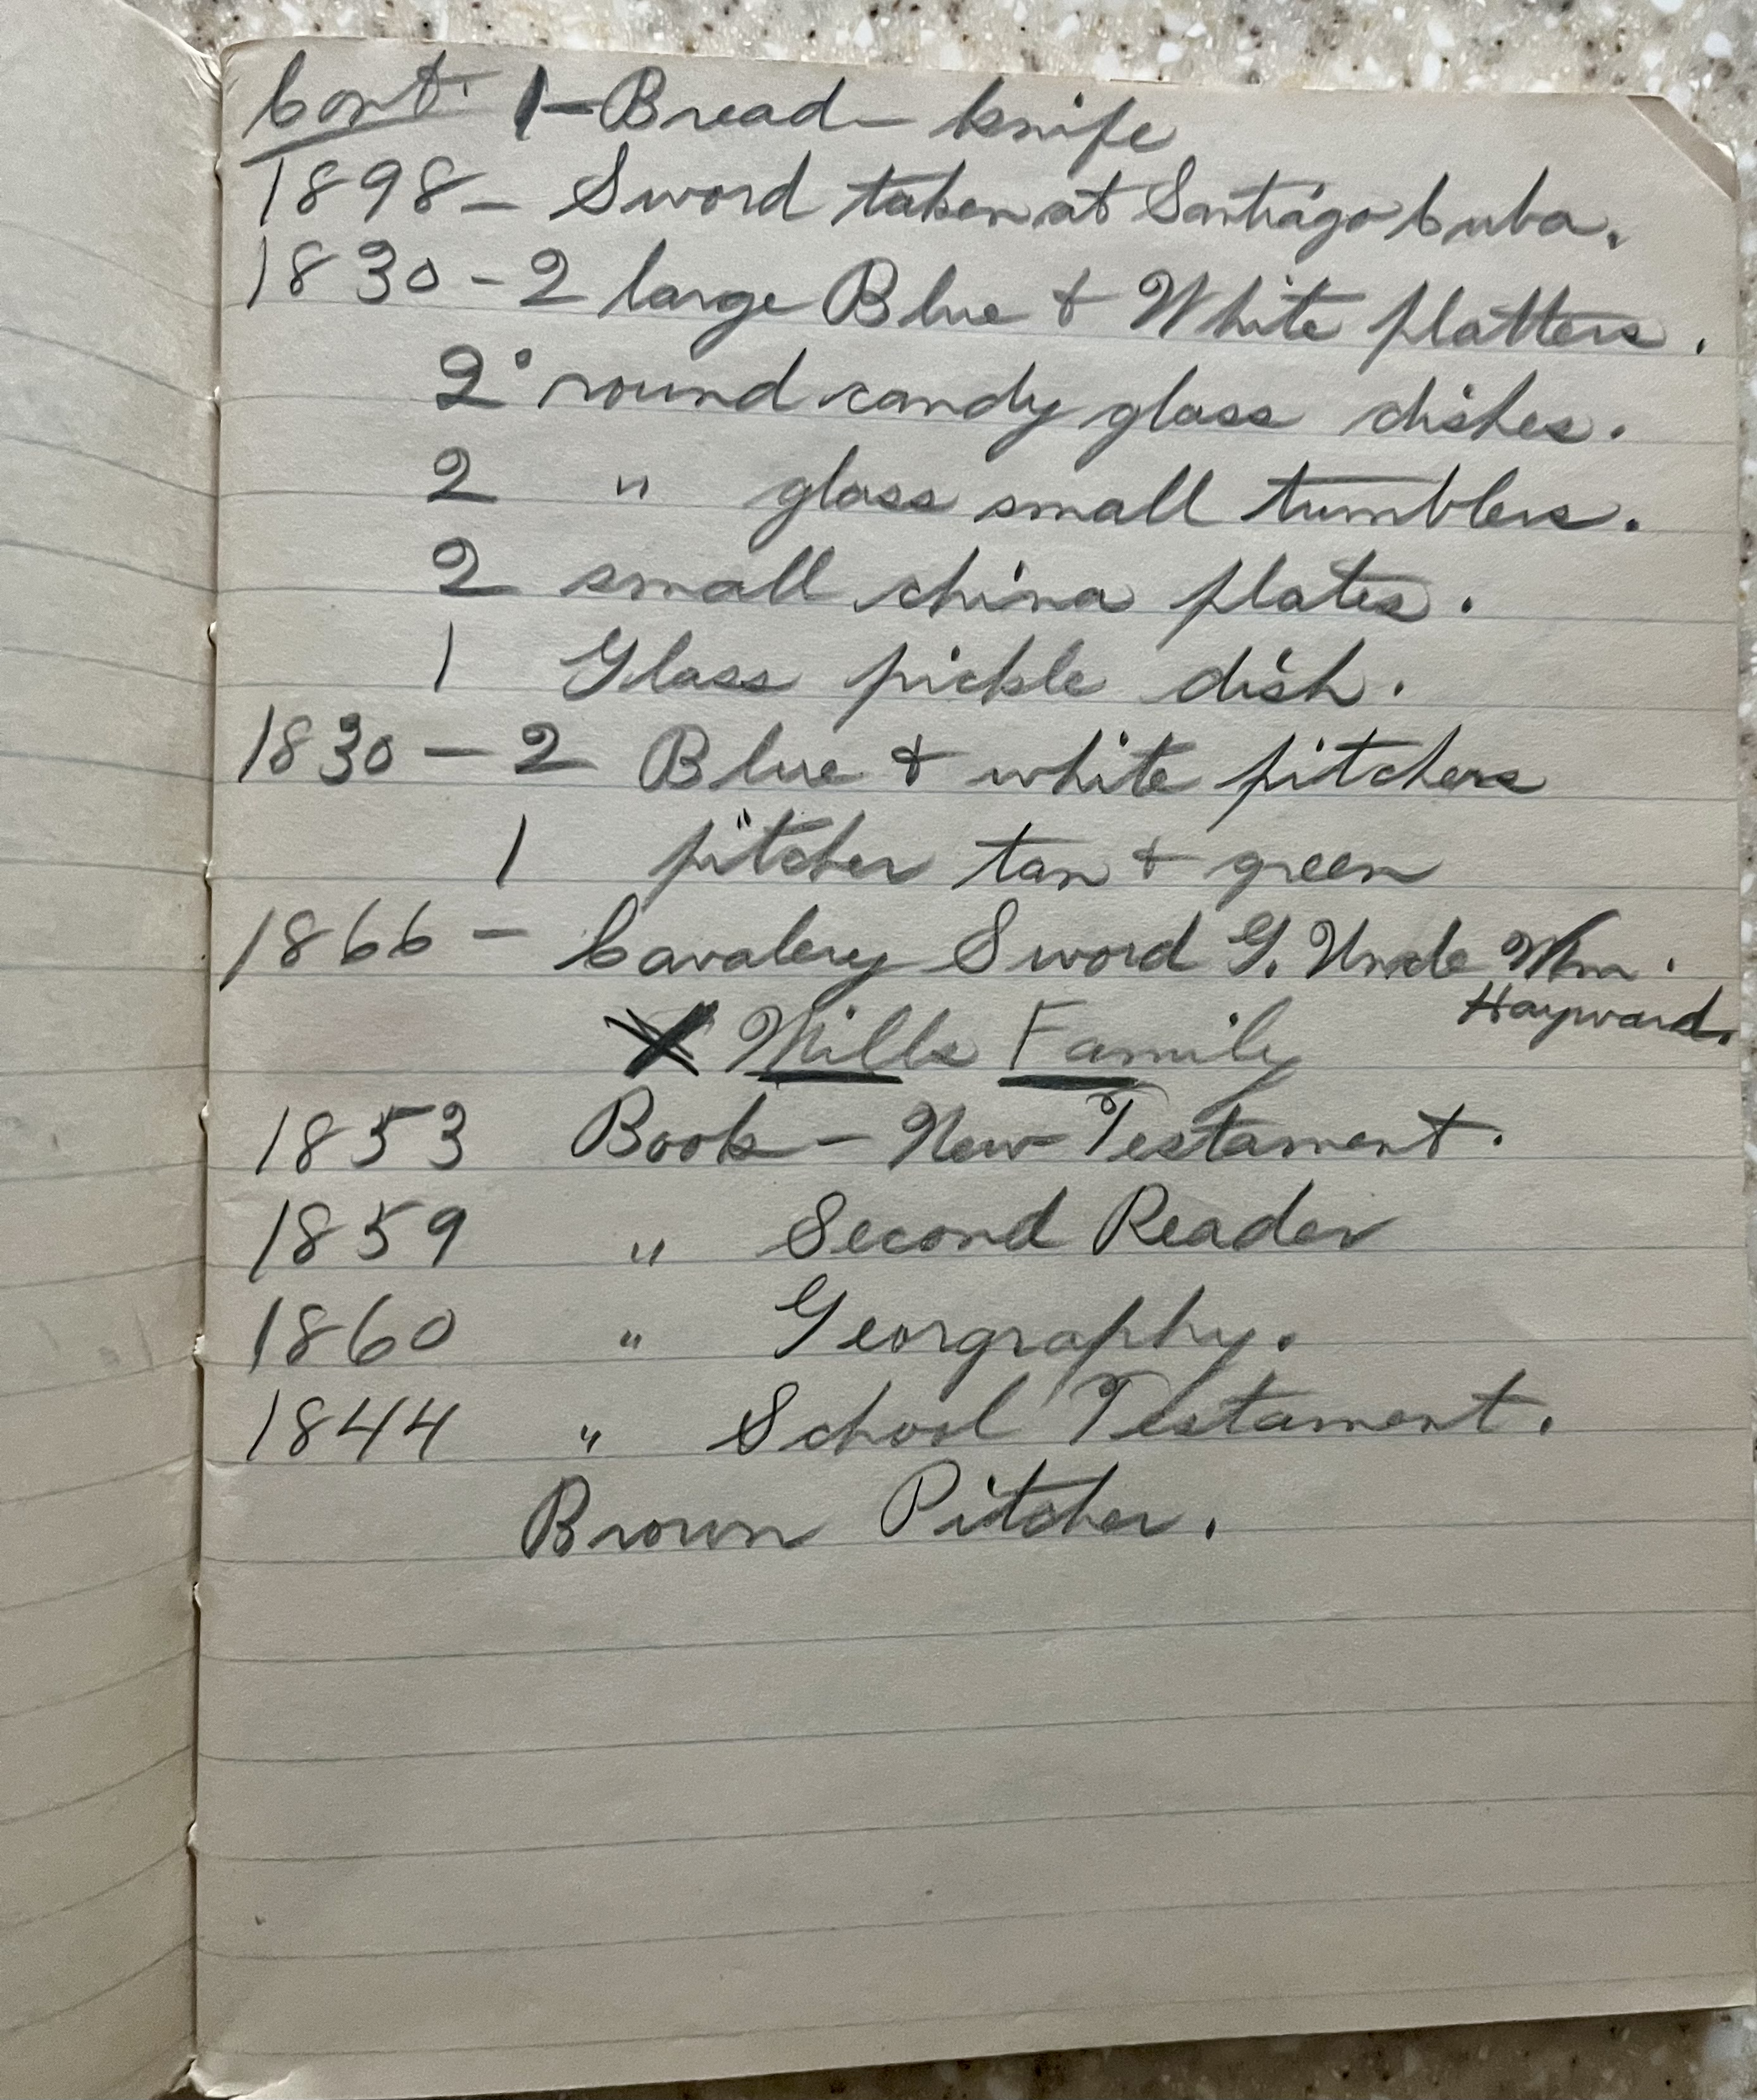 Cont. 1-Bread- knife
1898- Sword taken at Santiago Cuba.
1830-2 large Blue & White platters.
2 round candy glass dishes.
2 " glass small tumblers.
2 small china plates.
1 Glass pickle dish.
1830-2 Blue & white pitchers
1 pitcher tan & green
1866- Cavalery Sword G. Uncle Wm.
Hayward.
X Mills Family
1853 Book - New Testament.
1859 " Second Reader
1860 " Georgraphy.
1844 " School Testament.
Brown Pitcher.